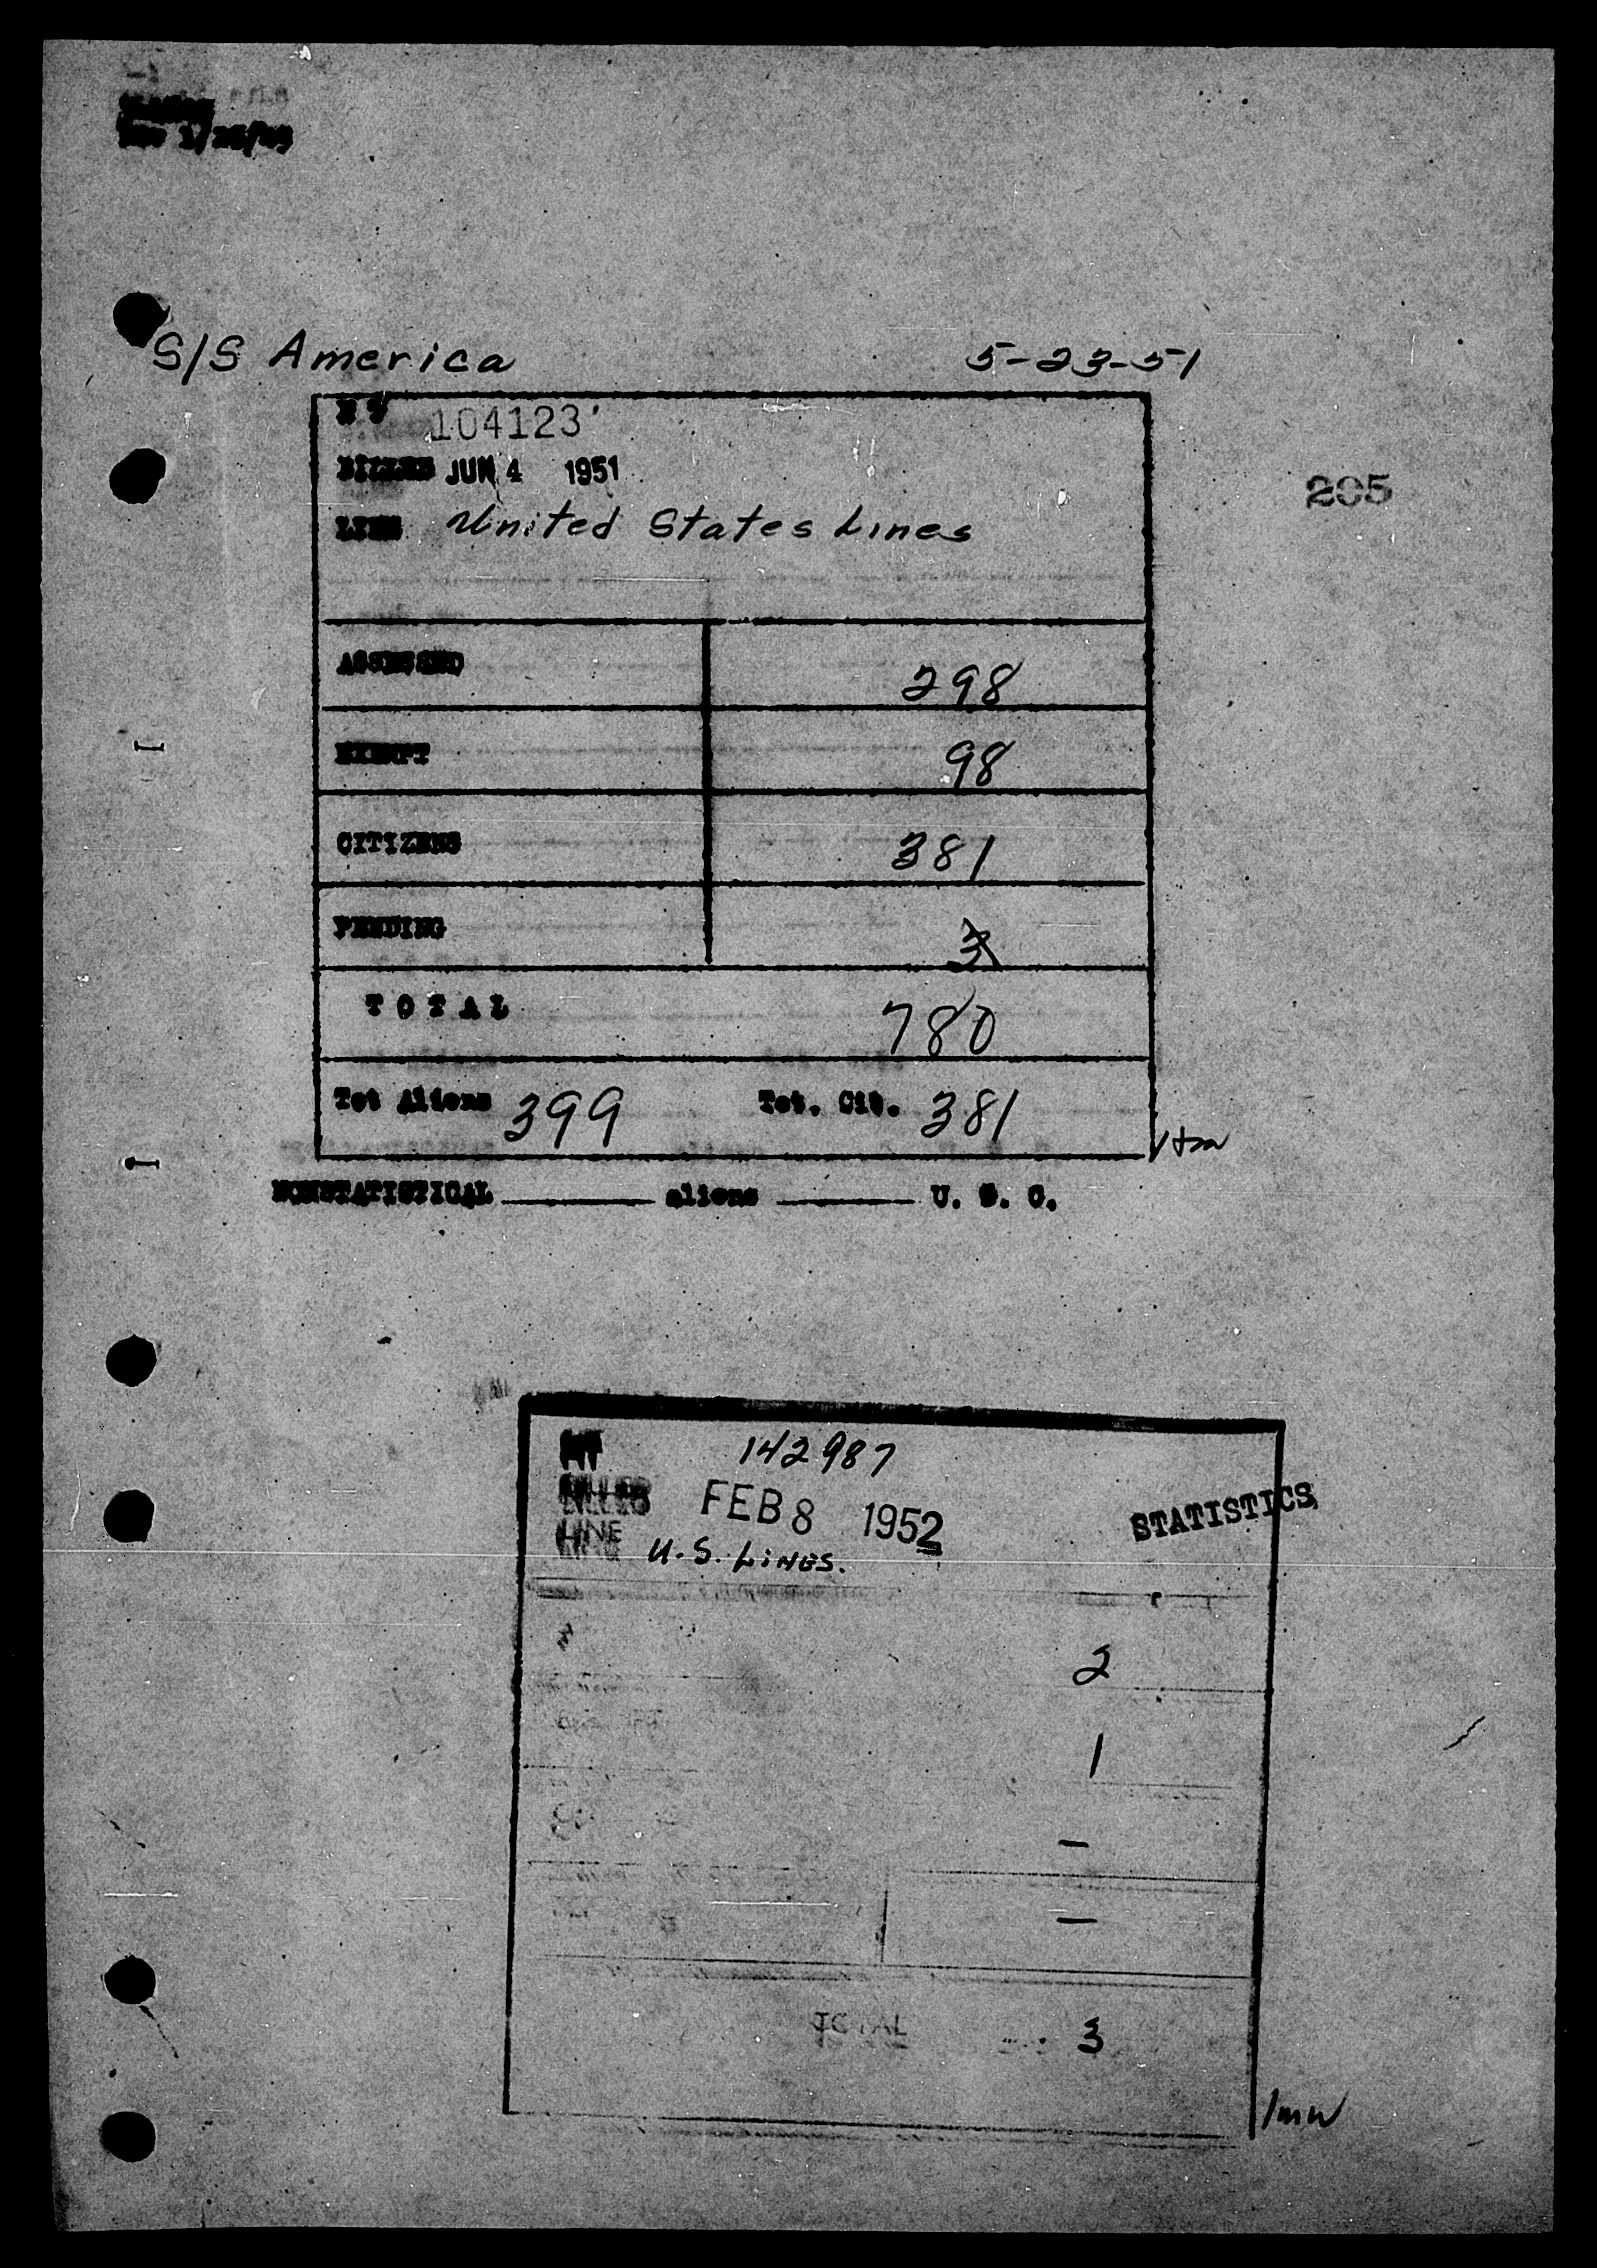 Rev 1/26/49
S/S America 5-23-51
104123
BILLED JUN 4 1951
205
LINE United States Lines
ASSESSED 298
EXEMPT 98
CITIZENS 381
PENDING 3
TOTAL 780
Tot Aliens 399 Tot. Cit. 381
NONSTATISTICAL ______ aliens ______ U. S. C.
142987
BILLED FEB 8 1952 STATISTICS
LINE U.S. LINES.
2
1
—
—
TOTAL 3
/mw